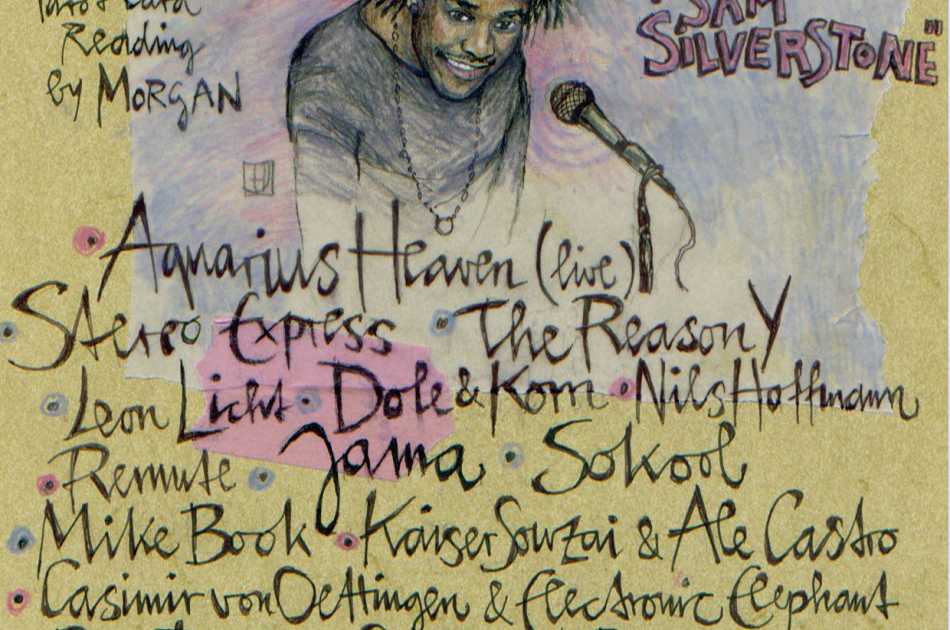 Reading
by MORGAN
"SAM
SILVERSTONE"
Aquarius Heaven (live)
Stereo Express • The Reason Y
Leon Licht • Dole & Kom • Nils Hoffmann
Remute • Jama • Sokool
Mike Book • Kaiser Souzai & Ale Castro
Casimir von Oettingen & Electronic Elephant